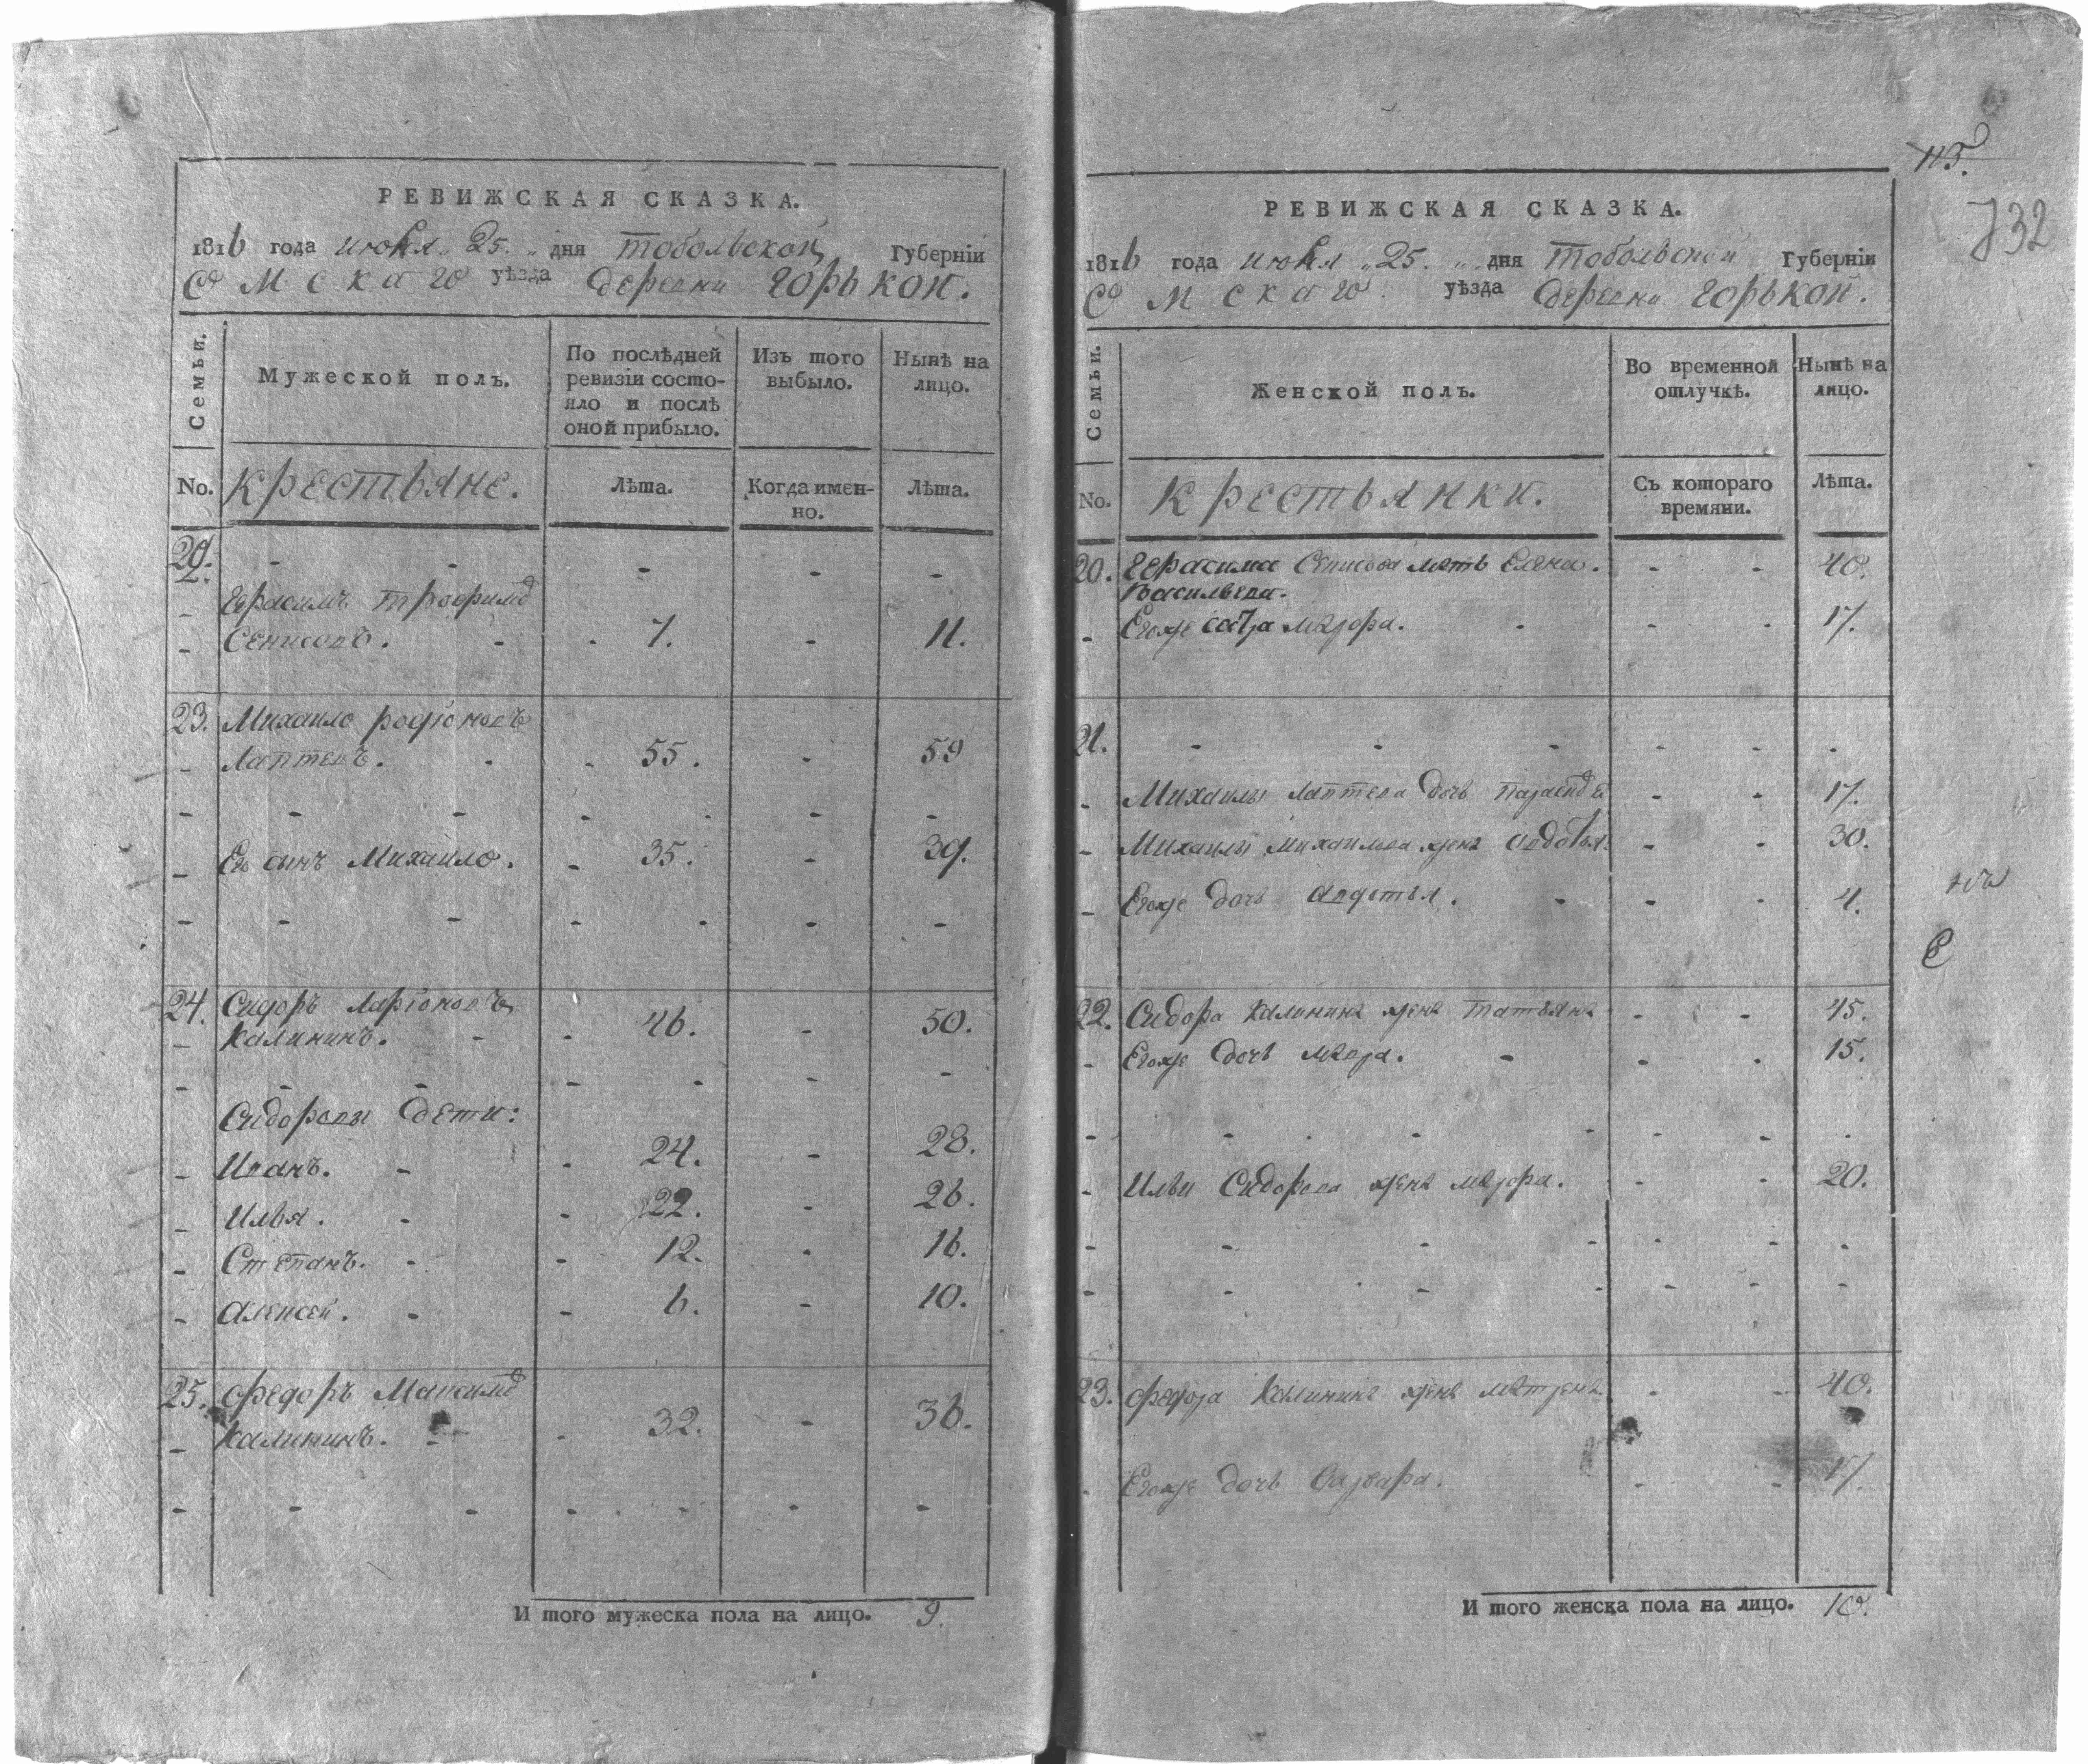 РЕВИЖСКАЯ СКАЗКА.
1816 года июня 25. дня тобольской Губерніи
Омскаго уѣзда деревни горькой.
Семьи.
Мужеской полъ.
По послѣдней ревизіи состояло и послѣ оной прибыло.
Изъ того выбыло.
Нынѣ на лицо.
No. крестьяне.
Лѣта. Когда именно. Лѣта.
- - - - -
Герасимъ трофимов
Сенисовъ. - - 7. - 11.
23. Михаило родіоновъ
Лаптевъ. - - 55. - 59
- - - - - - -
Ево сынъ Михаило. - 35. - 39.
- - - - - - -
24. Сидоръ Ларіоновъ
Калининъ. - - 46. - 50.
- - - - - - -
Сидоровы дети:
Иванъ. - - 24. - 28.
Илья. - - 22. - 26.
Степанъ. - - 12. - 16.
Алексей. - - 6. - 10.
25. Федоръ Максимов
Калининъ. - - 32. - 36.
- - - - - - -
И того мужеска пола на лицо. 9.
115.
732
РЕВИЖСКАЯ СКАЗКА.
1816 года июня 25. дня тобольской Губерніи
Омскаго уѣзда деревни горькой.
Семьи.
Женской полъ.
Во временной отлучкѣ.
Нынѣ на лицо.
No. крестьянки.
Съ котораго времяни. Лѣта.
20. Герасима Сенисова мать Елена. - - 40.
Васильева.
- Егоже сестра мавра. - - - 17.
21. - - - - - -
- Михаилы лаптева дочь - - 17.
- Михаилы михаилова жена авдотья. - - 30.
- Егоже дочь авдотья. - - - 4.
22. Сидора калинина жена татьяна - - 45.
- Егоже дочь - - - 15.
- - - - - - - -
- Ильи Сидорова жена - - 20.
- - - - - - -
- - - - - - -
23. федора калинина жена матрена - - 40.
- Егоже дочь варвара. - - 17.
И того женска пола на лицо. 10.